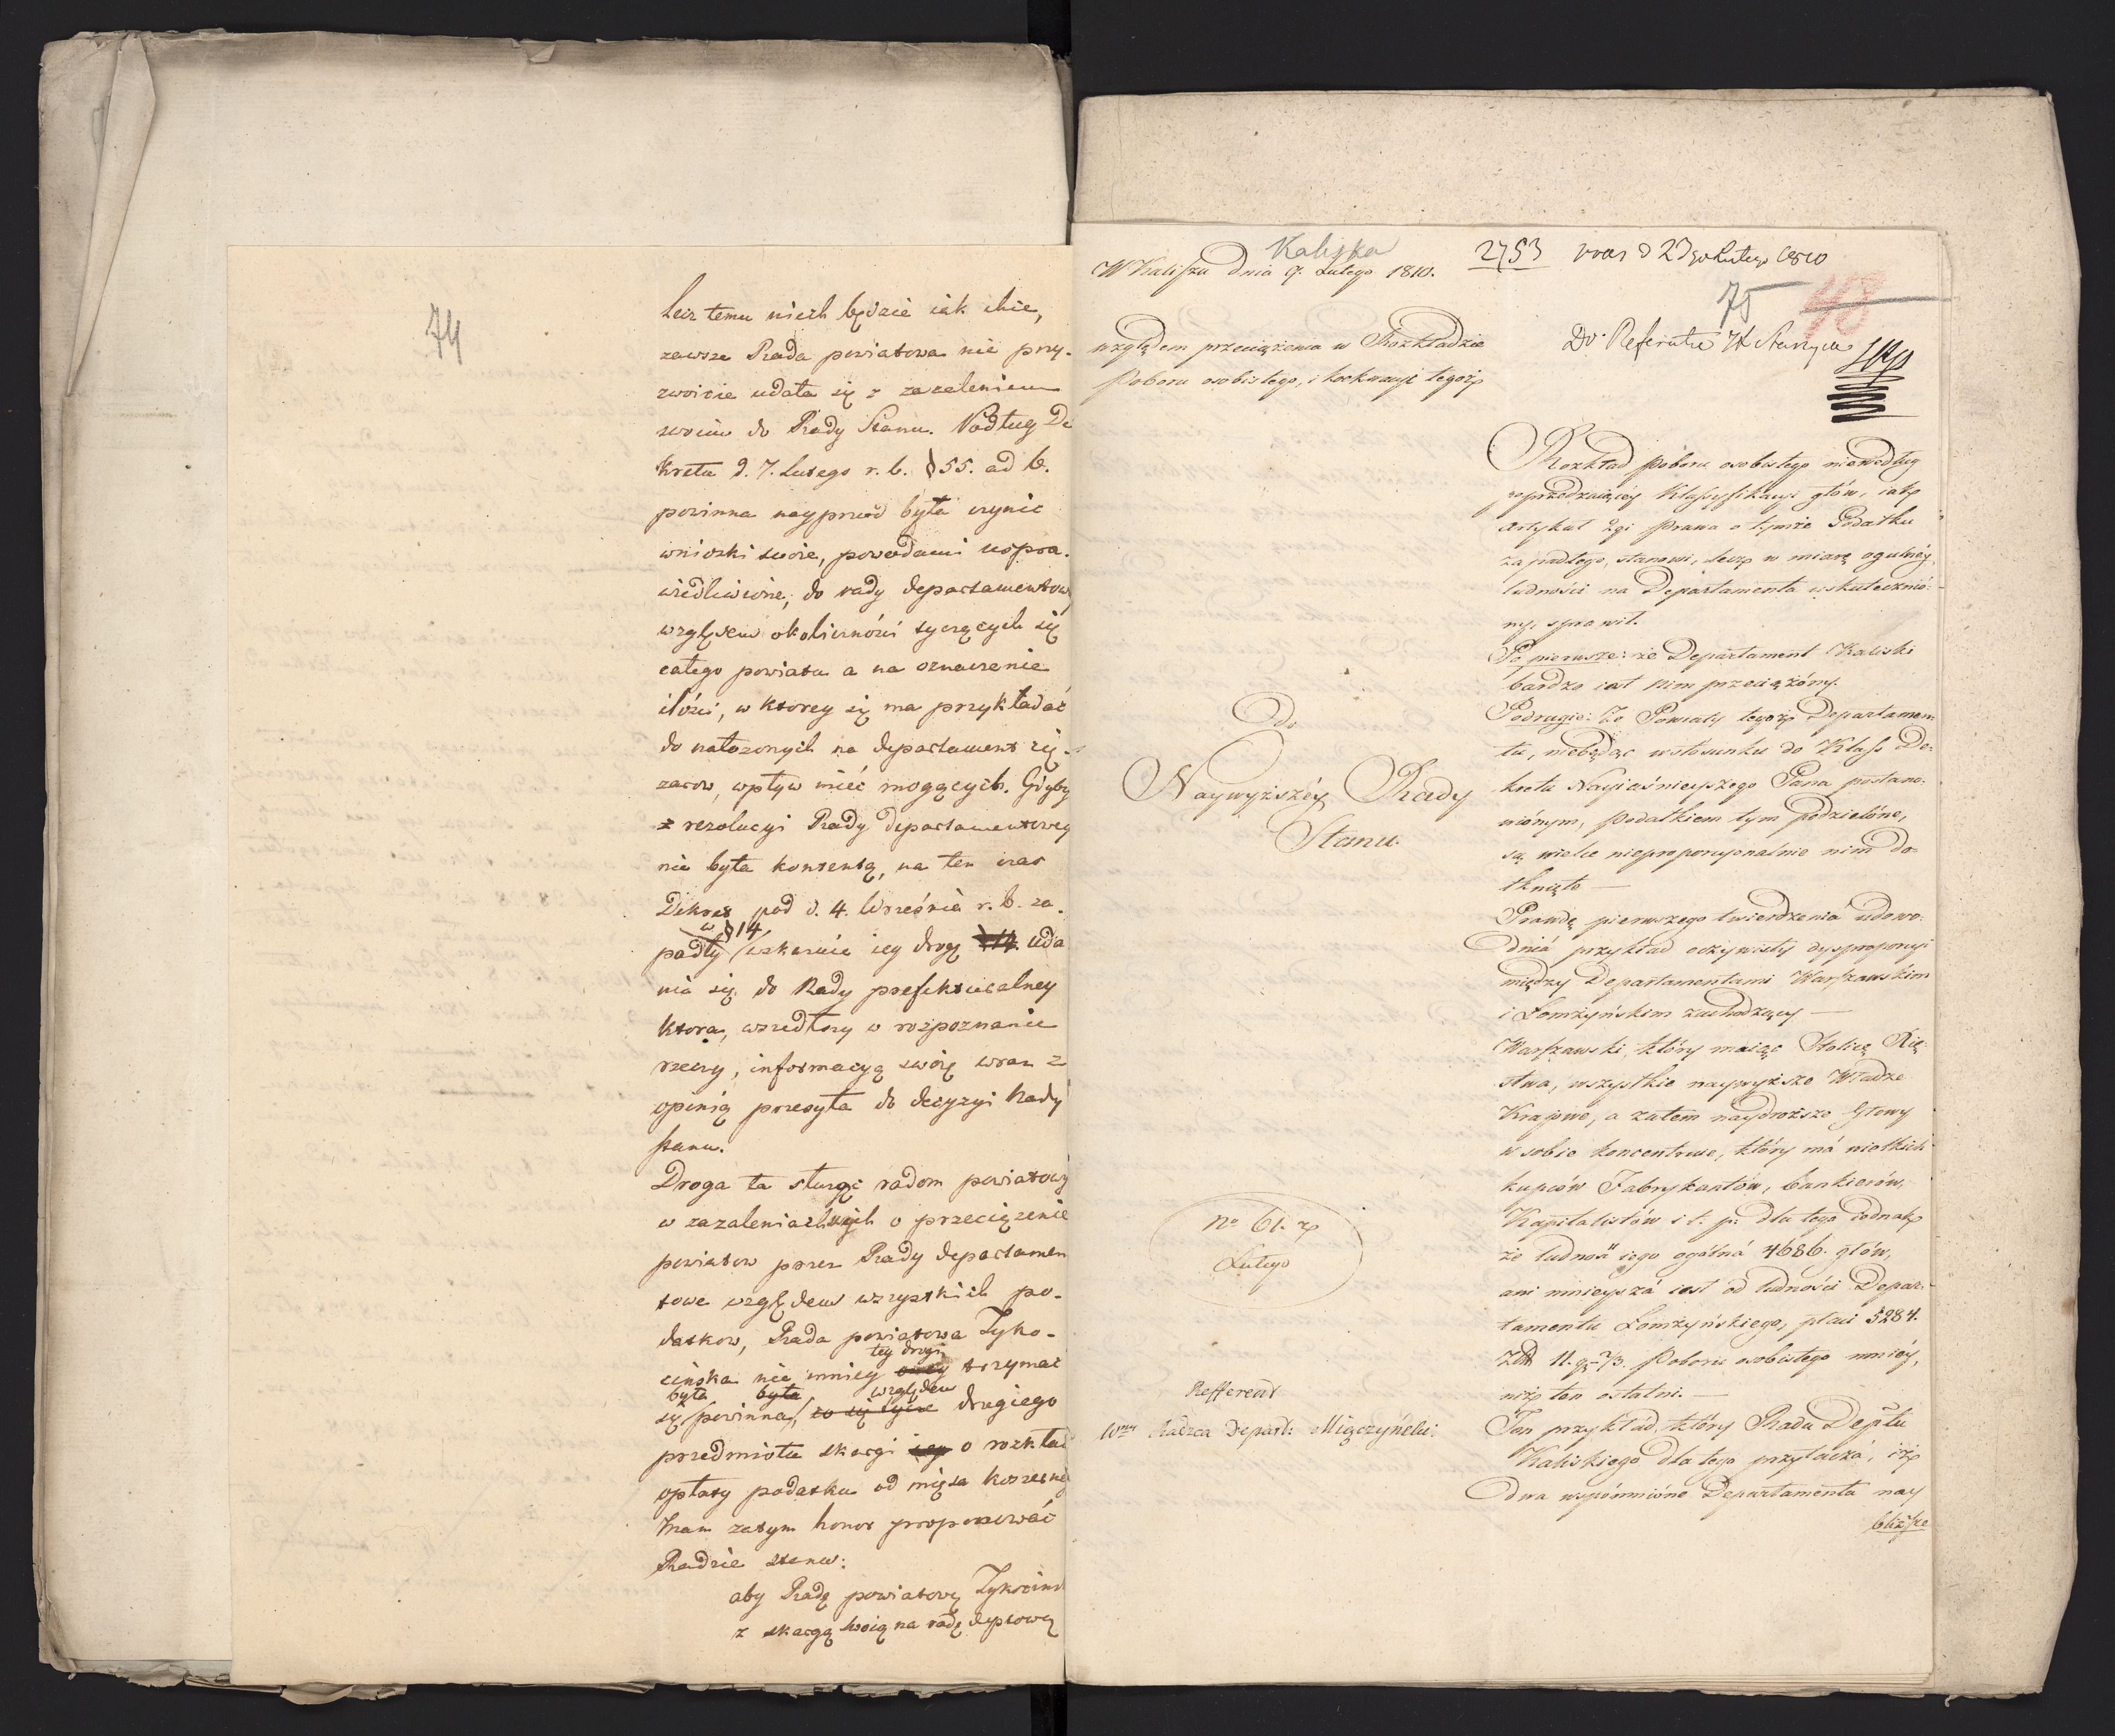 74
Lecz temu niech będzie iak chce,
zawsze Rada powiatowa nie przy-
zwoicie udała się z zazaleniem
swoim do Rady Stanu. Podług De
kretu d. 7. Lutego r. b. § 55. ad b.
powinna nayprzod była czynic
wnioski swoie, powodami uspra-
wiedliwione, do rady departamentowey
względem okoliczności tyczących się
całego powiatu a na oznaczenie
ilości, w ktorey się ma przykładać
do nałozonych na departament cię-
zarow, wpływ mieć mogących. Gdyby
z rezolucyi Rady departamentowey
nie była kontentą, na ten czas
Dekret pod d. 4. Września r. b. za-
w § 14
padły wskazuie iey drogę uda
nia się do Rady prefekturalney
ktora, wszedłszy w rozpoznanie
rzeczy, informacyą swoię wraz z
opinią przesyła do decyzyi Rady
stanu.
Droga ta słuzyć radom powiatowy
w zazaleniach o przeciązenie
powiatow przez Rady departamen
towe względem wszystkich po-
datkow, Rada powiatowa Tyko-
tey drogi
cinska nie mniey trzymać
była była względem
się powinna, co się tycze drugiego
przedmiotu skargi iey o rozkład
opłaty podatku od mięsa koszerne
Mam zatym honor proponować
Radzie stanu:
aby Radę powiatową Tykocins
z skargą swoią na radę deptową
Kaliska
W Kaliszu dnia 9. Lutego 1810.
względem przeciążenia w Rozkładzie
Poboru osobistego, i tegoż
Do
Naywyższéy Rady
Stanu.
No 61. z
Lutego
Refferent
Wny Radzca Depart: Miączyński
2753 d 23go Lutego 1810
75
Do Referatu JW Staszyca
Rozkład poboru osobistego niewedług
poprzedzaiącéy Klassyfikacyi głów, iak
Artykuł 2gi Prawa o tymże Podatku
zapadłego, stanowi, lecz w miarę ogulnéy
ludności na Departamenta uskutecznio-
ny, sprawił.
Po pierwsze: że Departament Kaliski
bardzo iest nim przeciążóny.
Podrugie: Ze Powiaty tegoż Departamen
tu, niebędąc w stosunku do Klass De-
kretu Nayiaśnieyszego Pana postano-
wiónym, podatkiem tym podzielóne,
są wielce nieproporcyonalnie nim do-
tknięte —
Prawdę pierwszego twierdzenia udowo-
dnia przykład oczywisty dysproporcyi
między Departamentami Warszawskim
i Łomżyńskim zachodzący —
Warszawski, który maiąc Stolicę Xię-
stwa, wszystkie naywyższe Władze
Kraiowe, a zatem naydroższe Głowy
w sobie koncentruie, który má wielkich
kupców Fabrykantów, bankierów,
Kapitalistów i t. p. dla tego iednak
że ludność iego ogólná 4686. głów,
ani mnieyszá iest od ludności Depar-
tamentu Łomżyńskiego, płaci 5284.
Zł 11. gr 2/3. Poboru osobistego mniéy,
niż ten ostatni. —
Ten przykład, który Rada Deptu
Kaliskiego dla tego przytacza, iż
dwa wspómnióne Departamenta nay
bliższe